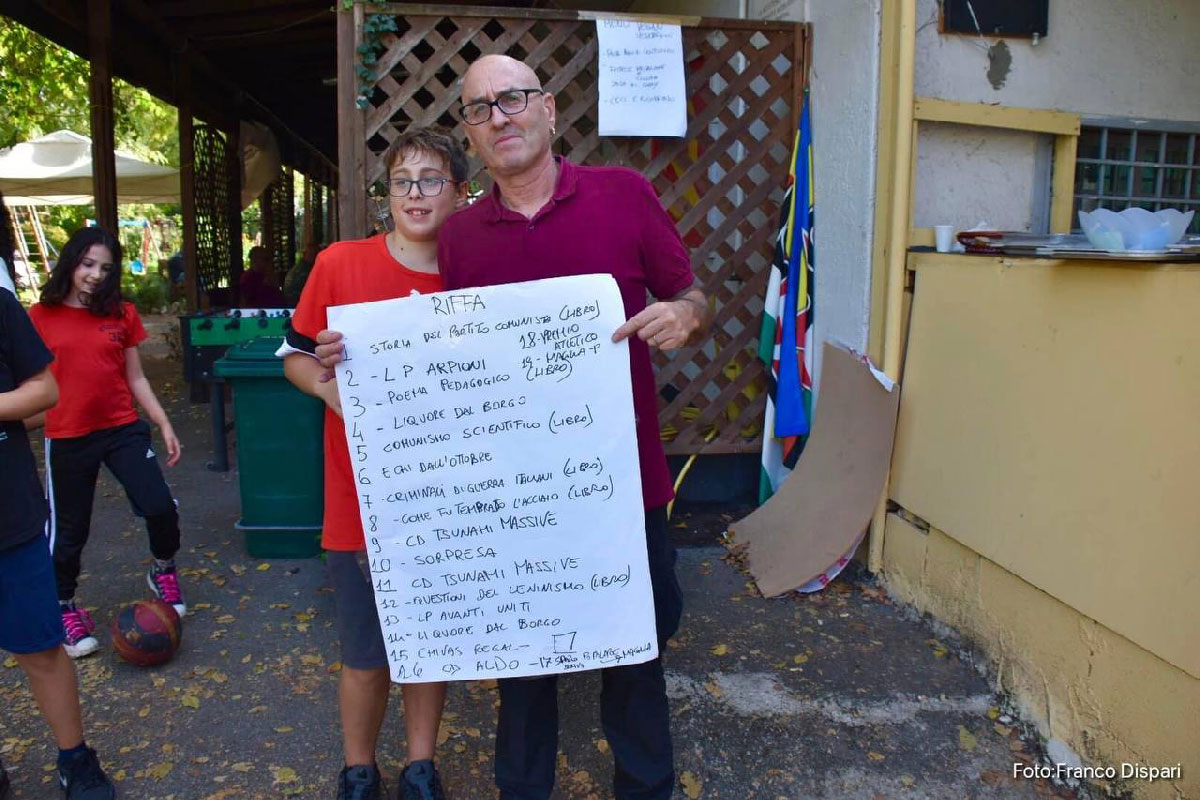 RIFFA
1 STORIA DEL PARTITO COMUNISTA (LIBRO)
18-PREMIO ATLETICO
2 - LP ARPIONI
19-MAGLIA-P
3 - POEMA PEDAGOGICO (LIBRO)
4 - LIQUORE DAL BORGO
5 COMUNISMO SCIENTIFICO (LIBRO)
6 ECHI DALL'OTTOBRE
7 - CRIMINALI DI GUERRA ITALIANI (LIBRO)
8 - COME FU TEMPRATO L'ACCIAIO (LIBRO)
9 - CD TSUNAMI MASSIVE
10 - SORPRESA
11 CD TSUNAMI MASSIVE
12 - QUESTIONI DEL LENINISMO (LIBRO)
13 - LP AVANTI UNITI
14 - LIQUORE DAL BORGO
15 CHIVAS REGAL -
16 CD ALDO - 17 POPOLARE MAGLIA
Foto:Franco Dispari